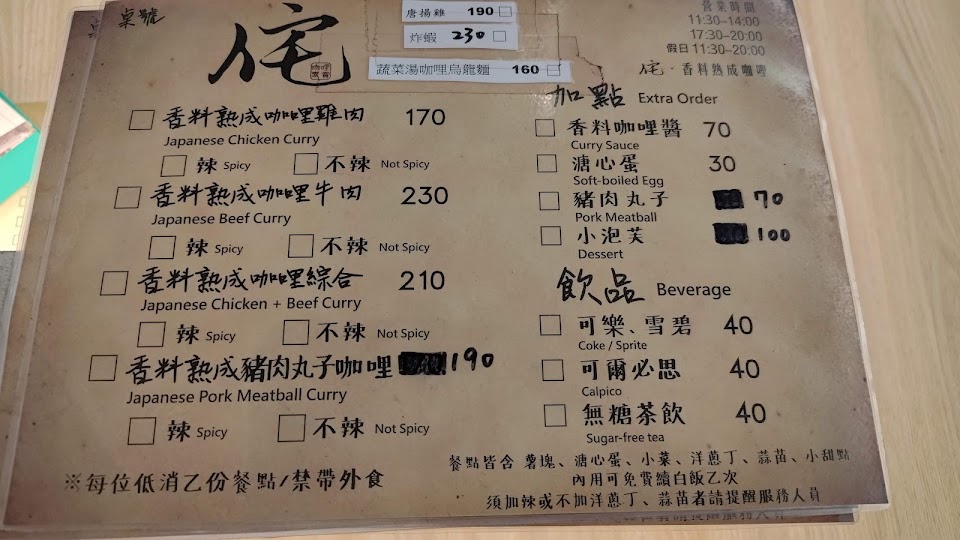 桌號
侘
唐揚雞 190
炸蝦 230
蔬菜湯咖哩烏龍麵 160
營業時間
11:30-14:00
17:30-20:00
假日 11:30-20:00
侘·香料熟成咖哩
香料熟成咖哩雞肉 170
Japanese Chicken Curry
辣 Spicy 不辣 Not Spicy
香料熟成咖哩牛肉 230
Japanese Beef Curry
辣 Spicy 不辣 Not Spicy
香料熟成咖哩綜合 210
Japanese Chicken + Beef Curry
辣 Spicy 不辣 Not Spicy
香料熟成豬肉丸子咖哩 190
Japanese Pork Meatball Curry
辣 Spicy 不辣 Not Spicy
※每位低消乙份餐點/禁帶外食
加點 Extra Order
香料咖哩醬 70
Curry Sauce
溏心蛋 30
Soft-boiled Egg
豬肉丸子 70
Pork Meatball
小泡芙 100
Dessert
飲品 Beverage
可樂、雪碧 40
Coke / Sprite
可爾必思 40
Calpico
無糖茶飲 40
Sugar-free tea
餐點皆含 薯塊、溏心蛋、小菜、洋蔥丁、蒜苗、小甜點
內用可免費續白飯乙次
須加辣或不加洋蔥丁、蒜苗者請提醒服務人員